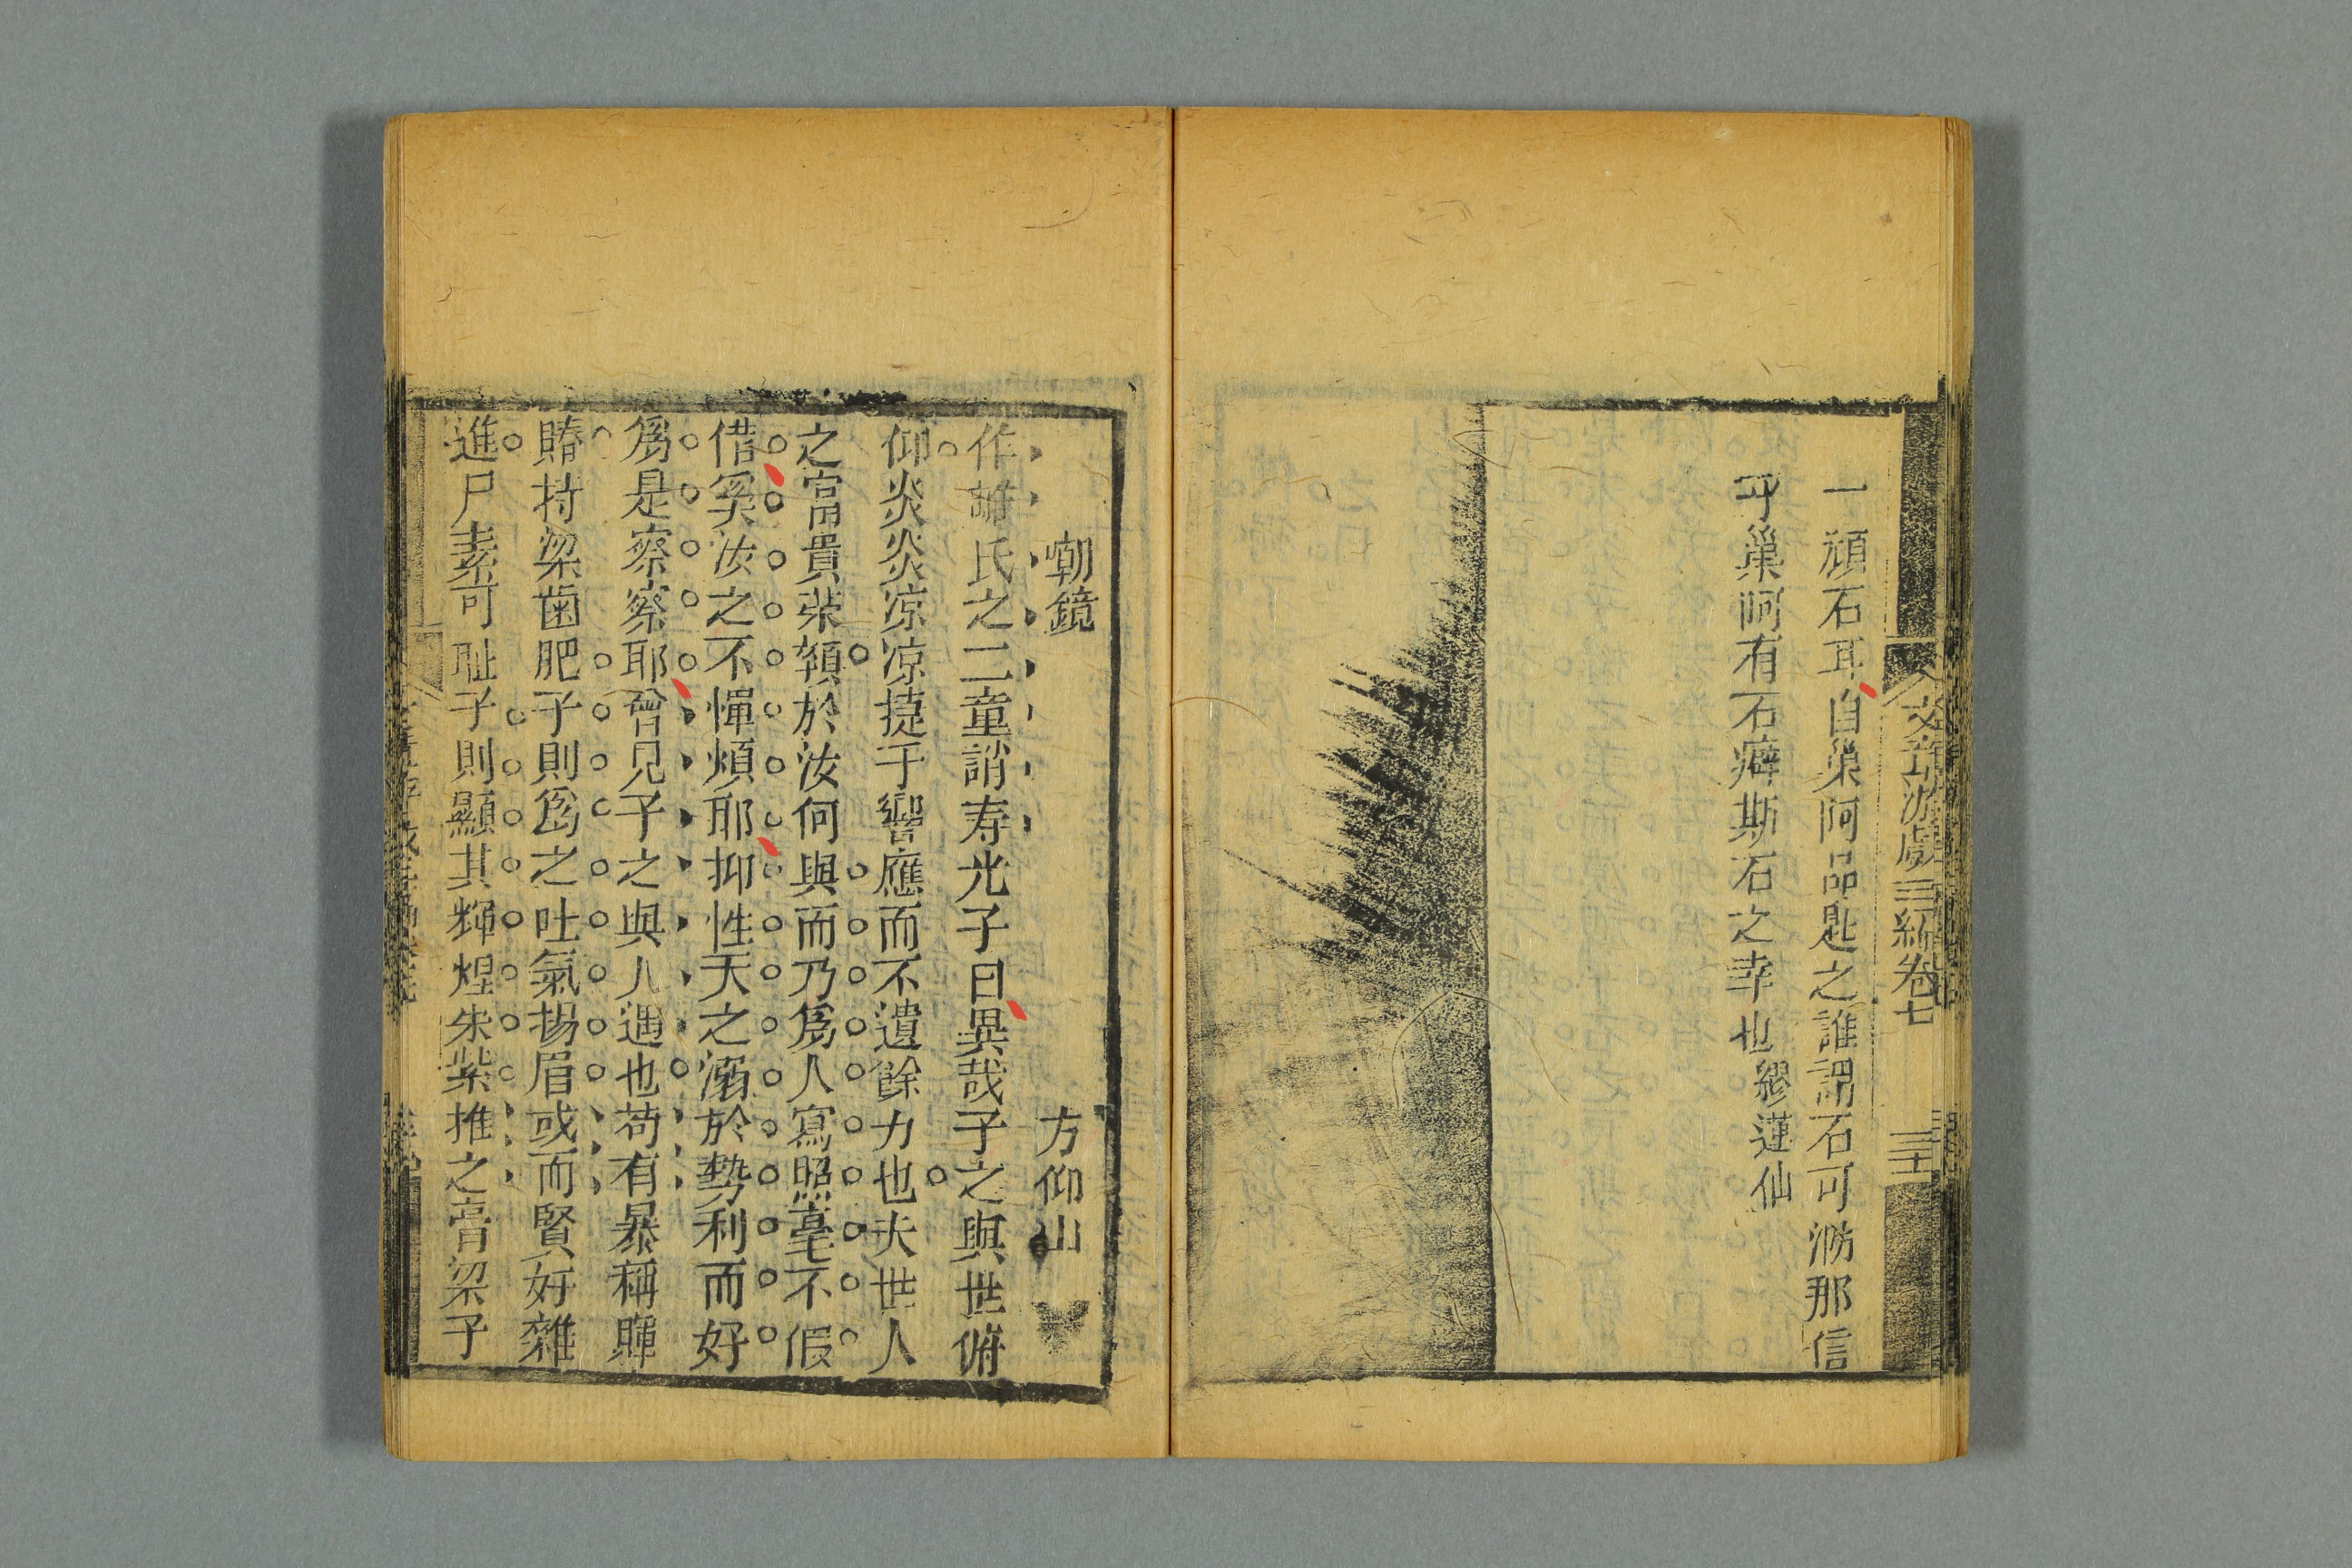 文章游戲三編卷七
一頑石耳自巢阿品題之誰謂石可渺那信
乎巢阿有石癖斯石之幸也繆蓮仙
嘲鏡
方仰山
作誰氏之二童誚寿光子曰異哉子之與世俯
仰炎炎凉凉捷于響應而不遺餘力也夫世人
之富貴荣顇於汝何與而乃爲人寫照毫不假
借奚汝之不憚煩耶抑性天之溺於勢利而好
爲是察察耶曾見子之與人遇也苟有暴稱
賭持梁齒肥子則爲之吐氣揚眉或而賢奸雜
進尸素可耻子則顯其輝煌朱紫推之膏梁子